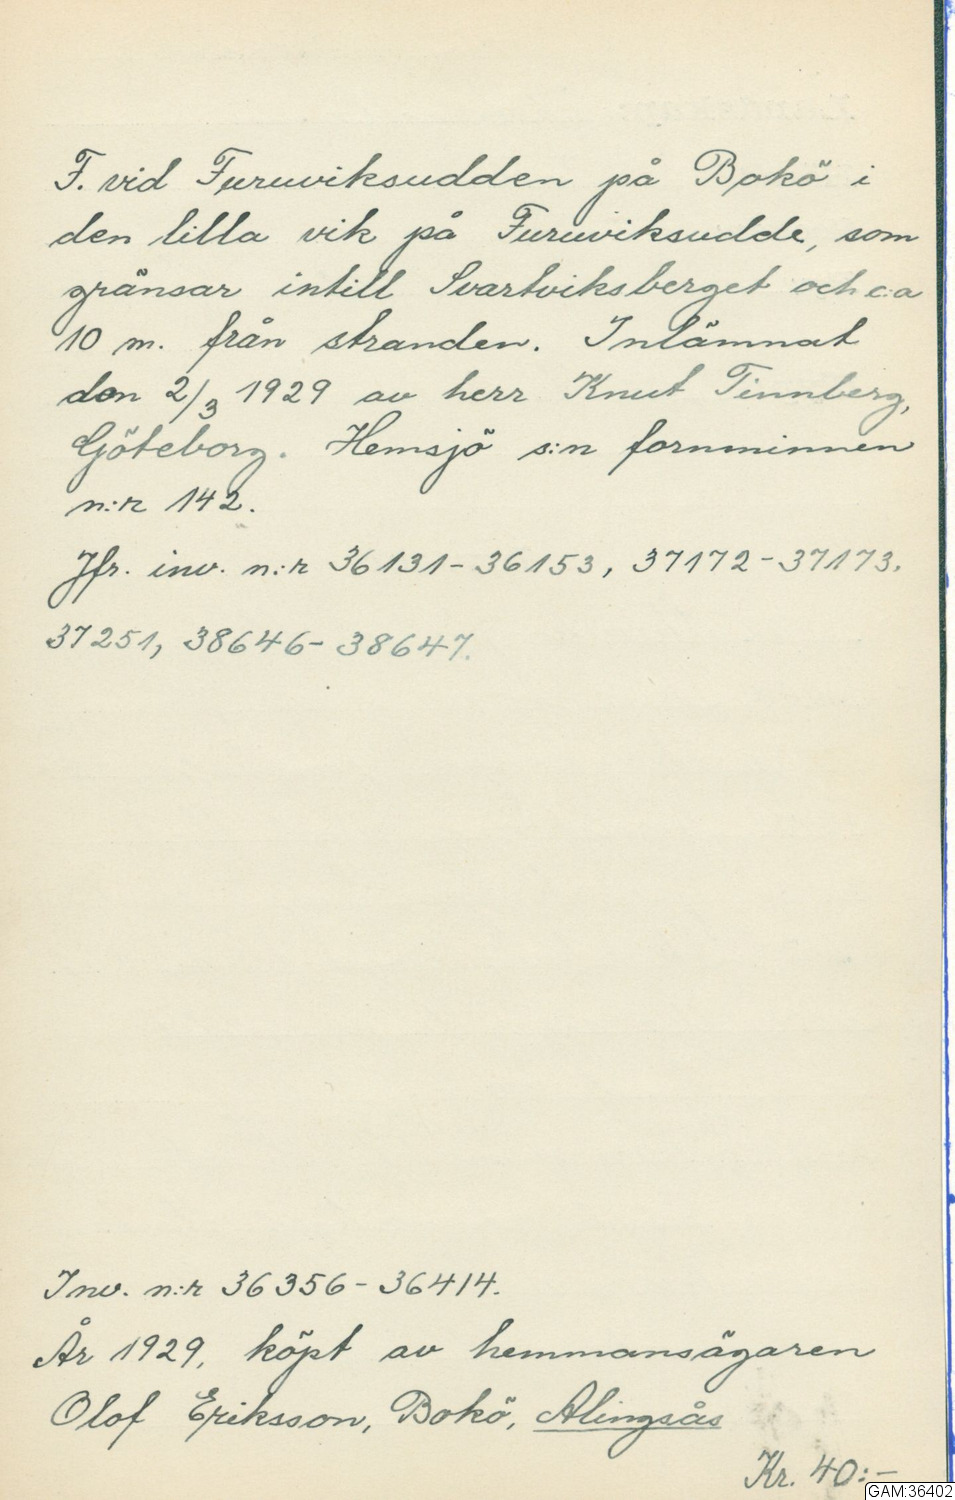 F. vid Furuviksudden på Bokö i
den lilla vik på Furuviksudde, som
gränsar intill Svartviksberget och c:a
10 m. från stranden. Inlämnat
den 2/3 1929 av herr Knut Tinnberg,
Göteborg. Hemsjö s:n fornminnen
n:r 142.
Jfr. inv. n:r 36131-36153, 37172-37173.
37251, 38646-38647.
Inv. n:r 36356-36414.
År 1929, köpt av hemmansägaren
Olof Eriksson, Bokö, Alingsås
Kr. 40:-
GAM:36402